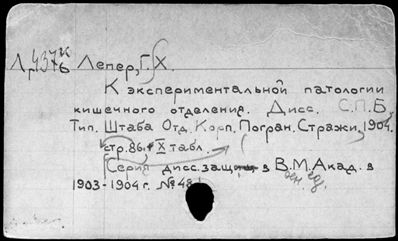 Лепер, Г. Х.
К экспериментальной патологии
кишечного отделения. Дисс. С.П.Б,
Тип. Штаба Отд. Корп. Погран. Стражи, 1904.
стр. 86. + X табл.
(Серия дисс. защищ. в В.М. Акад. в
1903-1904 г. № 48)